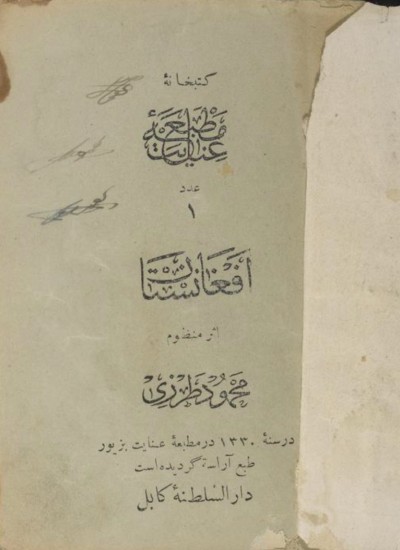 کتبخانهٔ
مطبعهٔ
عنایت
عدد
۱
افغانستان
اثر منظوم
محمود طرزی
در سنهٔ ۱۳۳۰ در مطبعهٔ عنایت بزیور
طبع آراسته گردیده است
دار السلطنهٔ کابل